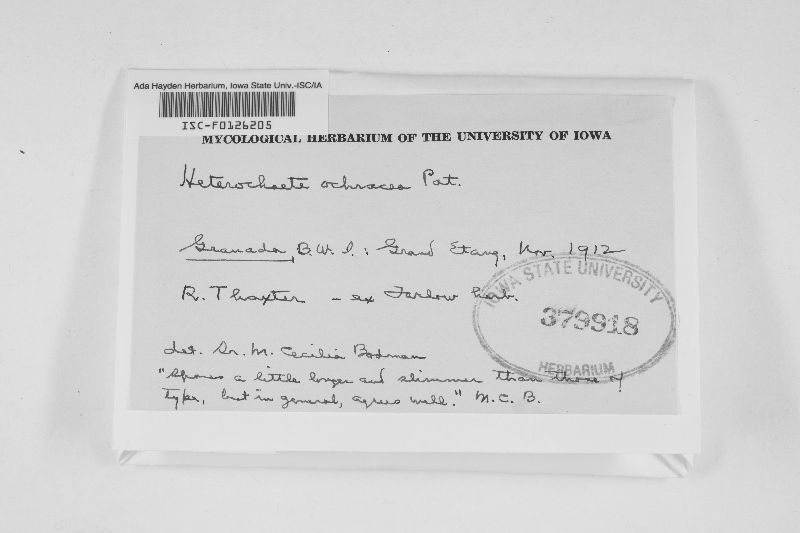 Ada Hayden Herbarium, Iowa State Univ.-ISC/IA
ISC-F0126205
MYCOLOGICAL HERBARIUM OF THE UNIVERSITY OF IOWA
Heterochaete ochracea Pat.
Granada, B.W.I.: Grand Etang, Nov. 1912
R. Thaxter – ex Farlow herb.
IOWA STATE UNIVERSITY
379918
HERBARIUM
det. Sr. M. Cecilia Bodman
"Spores a little longer and slimmer than those of
type, but in general, agrees well." M.C.B.